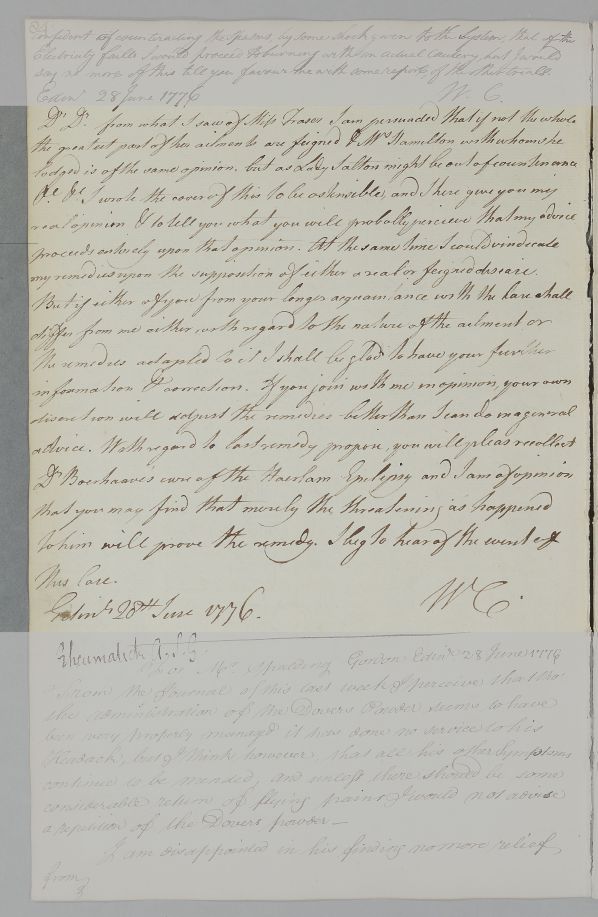 confident of counteracting the Spasms, by some shock given to the System, that if the
Electricity fails I would proceed to burning with an actual Cautery, but I would
say no more of this till you favour me with some report of the other trials.
Edinr. 28 June 1776 W. C.
Dr. Dr. from what I saw of Miss Fraser I am persuaded that if not the whole
the greatest part of her ailments are feigned & Mrs Hamilton with whom she
lodged is of the same opinion. but as Lady Salton might be out of countenance
&c &c I wrote the cover of this to be ostensible, and here give you my
real opinion & to tell you what you will probably perceive that my advice
proceeds entirely upon that opinion. At the same time I could vindicate
my remedies upon the supposition of either a real or feigned disease.
But if either of you from your longer acquaintance with the Case shall
differ from me either with regard to the nature of the ailment or
the remedies adapted to it I shall be glad to have your further
information & correction. If you join with me in opinion, your own
discretion will adjust the remedies better than I can do in a general
advice. With regard to last remedy propose, you will please recollect
Dr. Boerhaaves cure of the Haerlam Epilepsy and I am of opinion
that you may find that merely the threatening as happened
to him will prove the remedy. I beg to hear of the event of
this Case.
Edinr. 28th June 1776. WC.
Rheumatick
For Mr. Spalding Gordon Edinr. 28 June 1776
From the Journal of this last week I perceive that tho'
the administration of the Dovers Powder seems to have
been very properly managd it has done no service to his
Headach, but I think however, that all his other Symptoms
continue to be mended, and unless there should be some
considerable return of flying pains I would not advise
a repetition of the Dovers powder—
I am disappointed in his finding no more relief
from